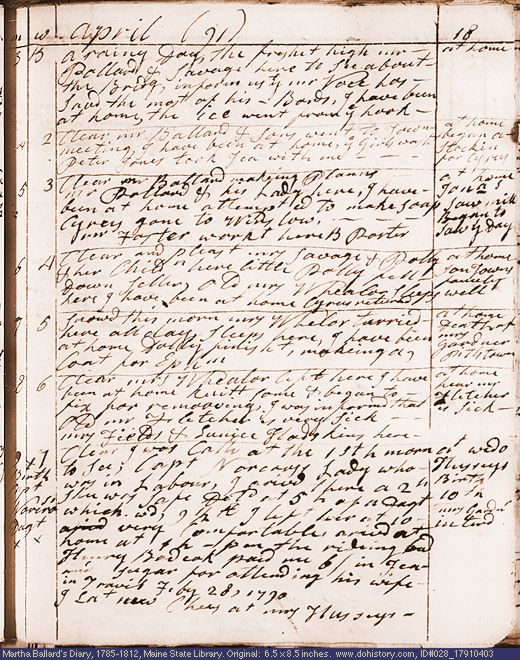 m w April (91) 18
3 B a rainy Day, the freshet high mr at home
Ballard & Savage here to See about
the Bridg, inform us that mr Voce has
Saved the most of his Bords, I have been
at home, the ice went
2 Clear mr Ballard & Sons went to Town at home
meeting, I have been at home, Girls wash began a
Peter Jones took Tea with me stockin for Cyrus
5 3 Clear mr Ballard makeing Planns at home
mr Pollard & his Lady here, I have
been at home attempted to make soap Saw mill
Cyrus gone to Winslow, Began to
mr Foster workt here B Porter Saw ys Day
6 4 Clear and pleast mrs Savage & Polly at home
& her Child n here little Polly fell
Down Seller, old mrs Whealor Sleeps
here I have been at home Cyrus returnd well
7 5 Snowd this morn mrs Whelor tarried at home
here all day, Sleeps here, I have been Death of
at home, Dolly finisht makeing a mr Gardner
Coat for Ephm Pittstown
8 6 Clear, mrs Whealor left here I have at home
been at home knitt some & began to hear mr
fix for removeing, I was informd that Fletcher
Old mr Fletcher is very Sick is Sick
mrs Fields & Eunice here
7 Clear I was Calld at the 15th morn at wedo
Birth to See Capt Norcross Lady who Husseys
was in Labour, I arived there a 2 h Birth
She was safe Delvd at 5 h of a Dagt 10th
which 10 I left her at 10
very Comfortable arivd at
home at pm the rideing bad
Henry Badcok paid me 6/ in Tea
and Sugar for attending his wife
in Travil Feby 28, 1790
I Left new Chees at mrs Husseys
Martha Ballard's Diary, 1785-1812, Maine State Library. Original: 6.5 x 8.5 inches. www.dohistory.org, ID#028_17910403